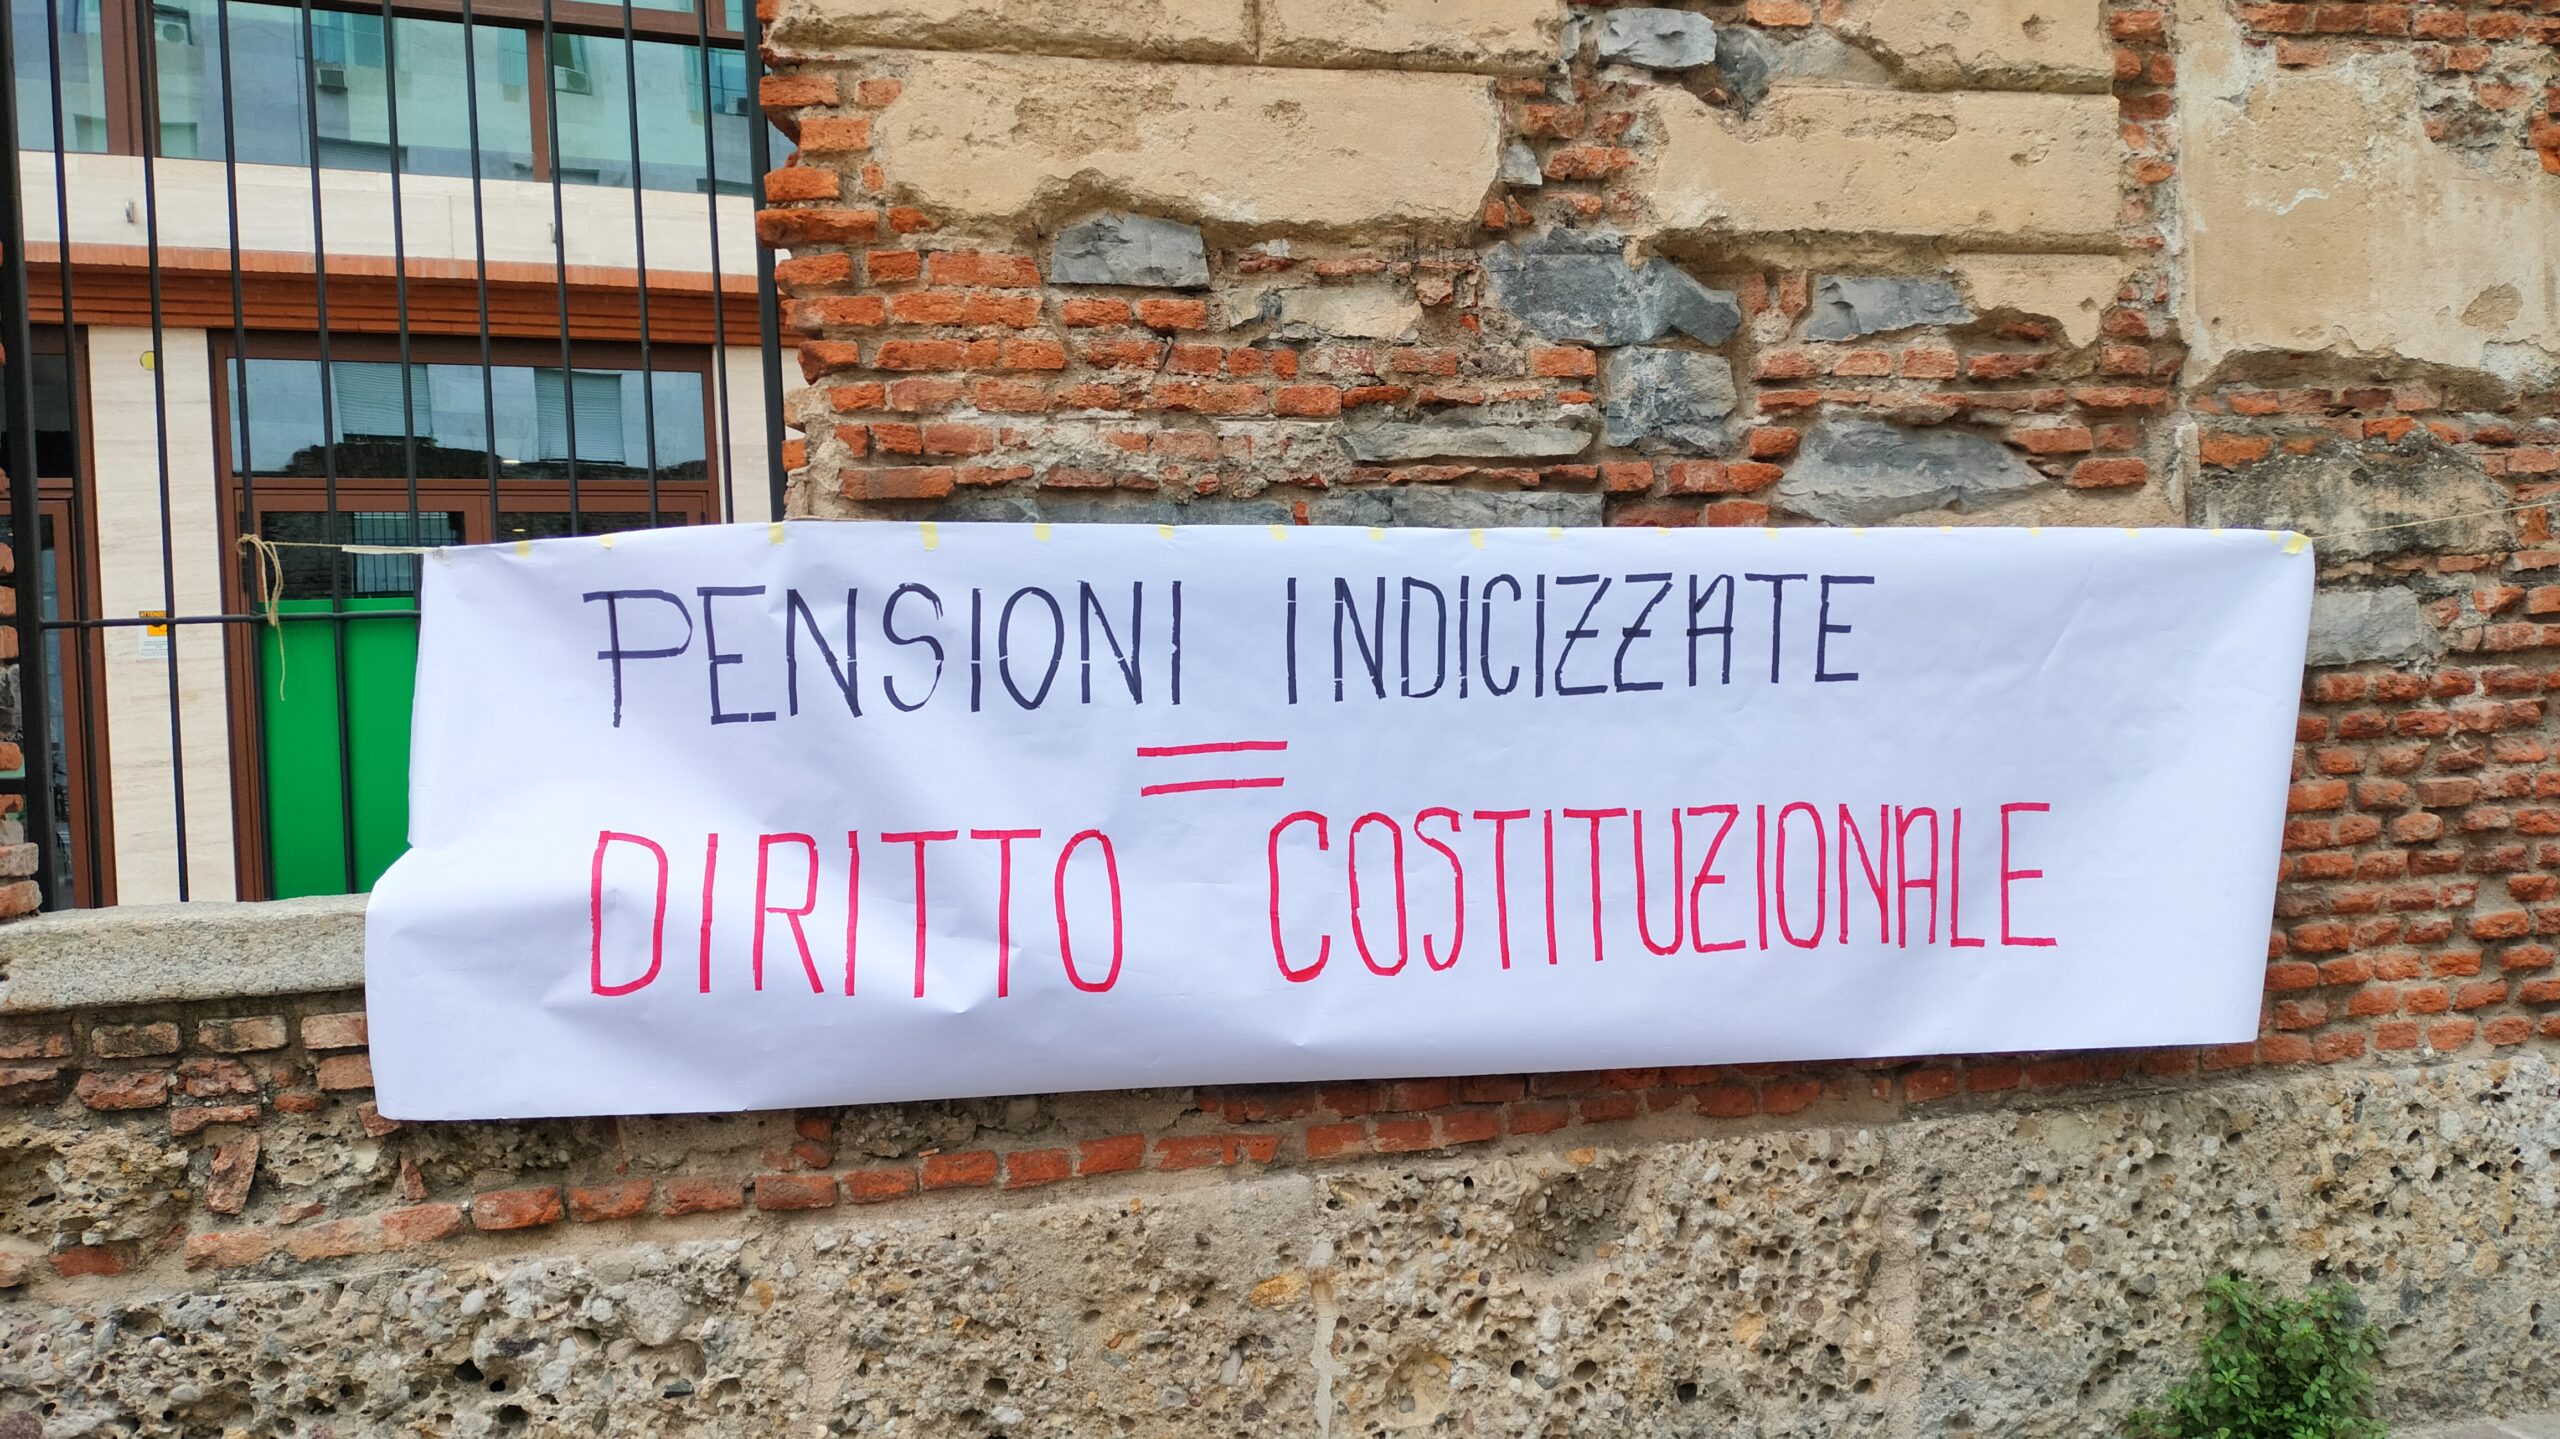 PENSIONI INDICIZZATE
=
DIRITTO COSTITUZIONALE